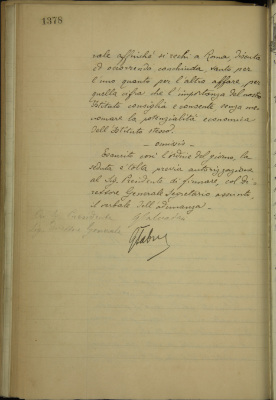 1378
rale affinché si rechi a Roma, discuta
ed occorrendo conchiuda, tanto per
l'uno quanto per l'altro affare, per
quella cifra che l'importanza del nostro
Istituto consiglia e consente senza me-
nomare la potenzialità economica
dell'Istituto stesso.
— omissis —
Esaurito con l'ordine del giorno, la
seduta è tolta previa autorizzazione
al Sig. Presidente di firmare, col Di-
rettore Generale Segretario assunto
il verbale dell'adunanza —
Presidente
Generale